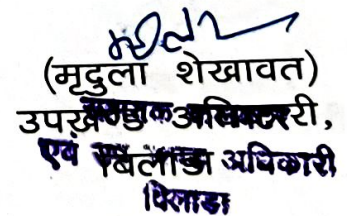 (मृदुला शेखावत)
उपखण्ड अधिकारी,
एवं अधिकारी
बिलाडा
बिलाडा